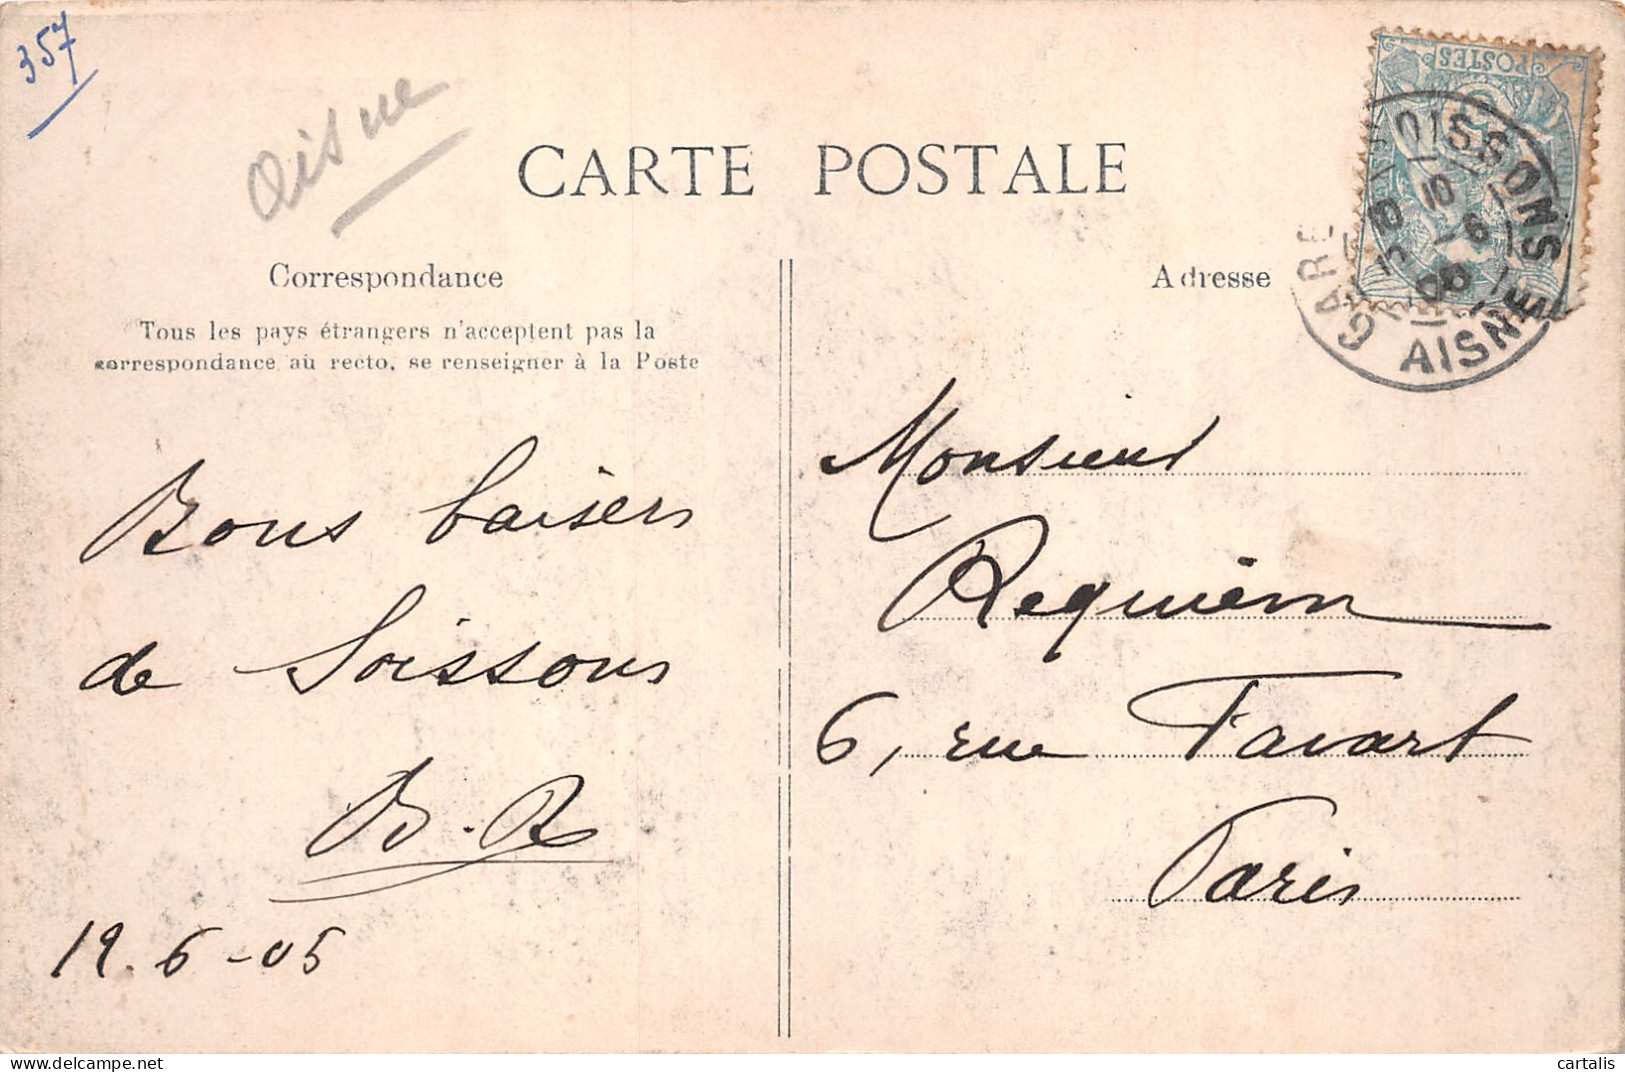 357
Aisne
CARTE POSTALE
Correspondance
Tous les pays étrangers n'acceptent pas la
correspondance au recto, se renseigner à la Poste
Adresse
POSTES
GARE DE SOISSONS
AISNE
Bons baisers
de Soissons
B.R
19.6-05
Monsieur
Requièm
6, rue Favart
Paris
cartalis